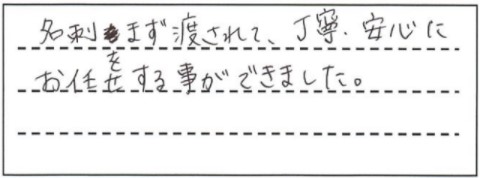 名刺をまず渡されて、丁寧・安心に
お任せする事ができました。